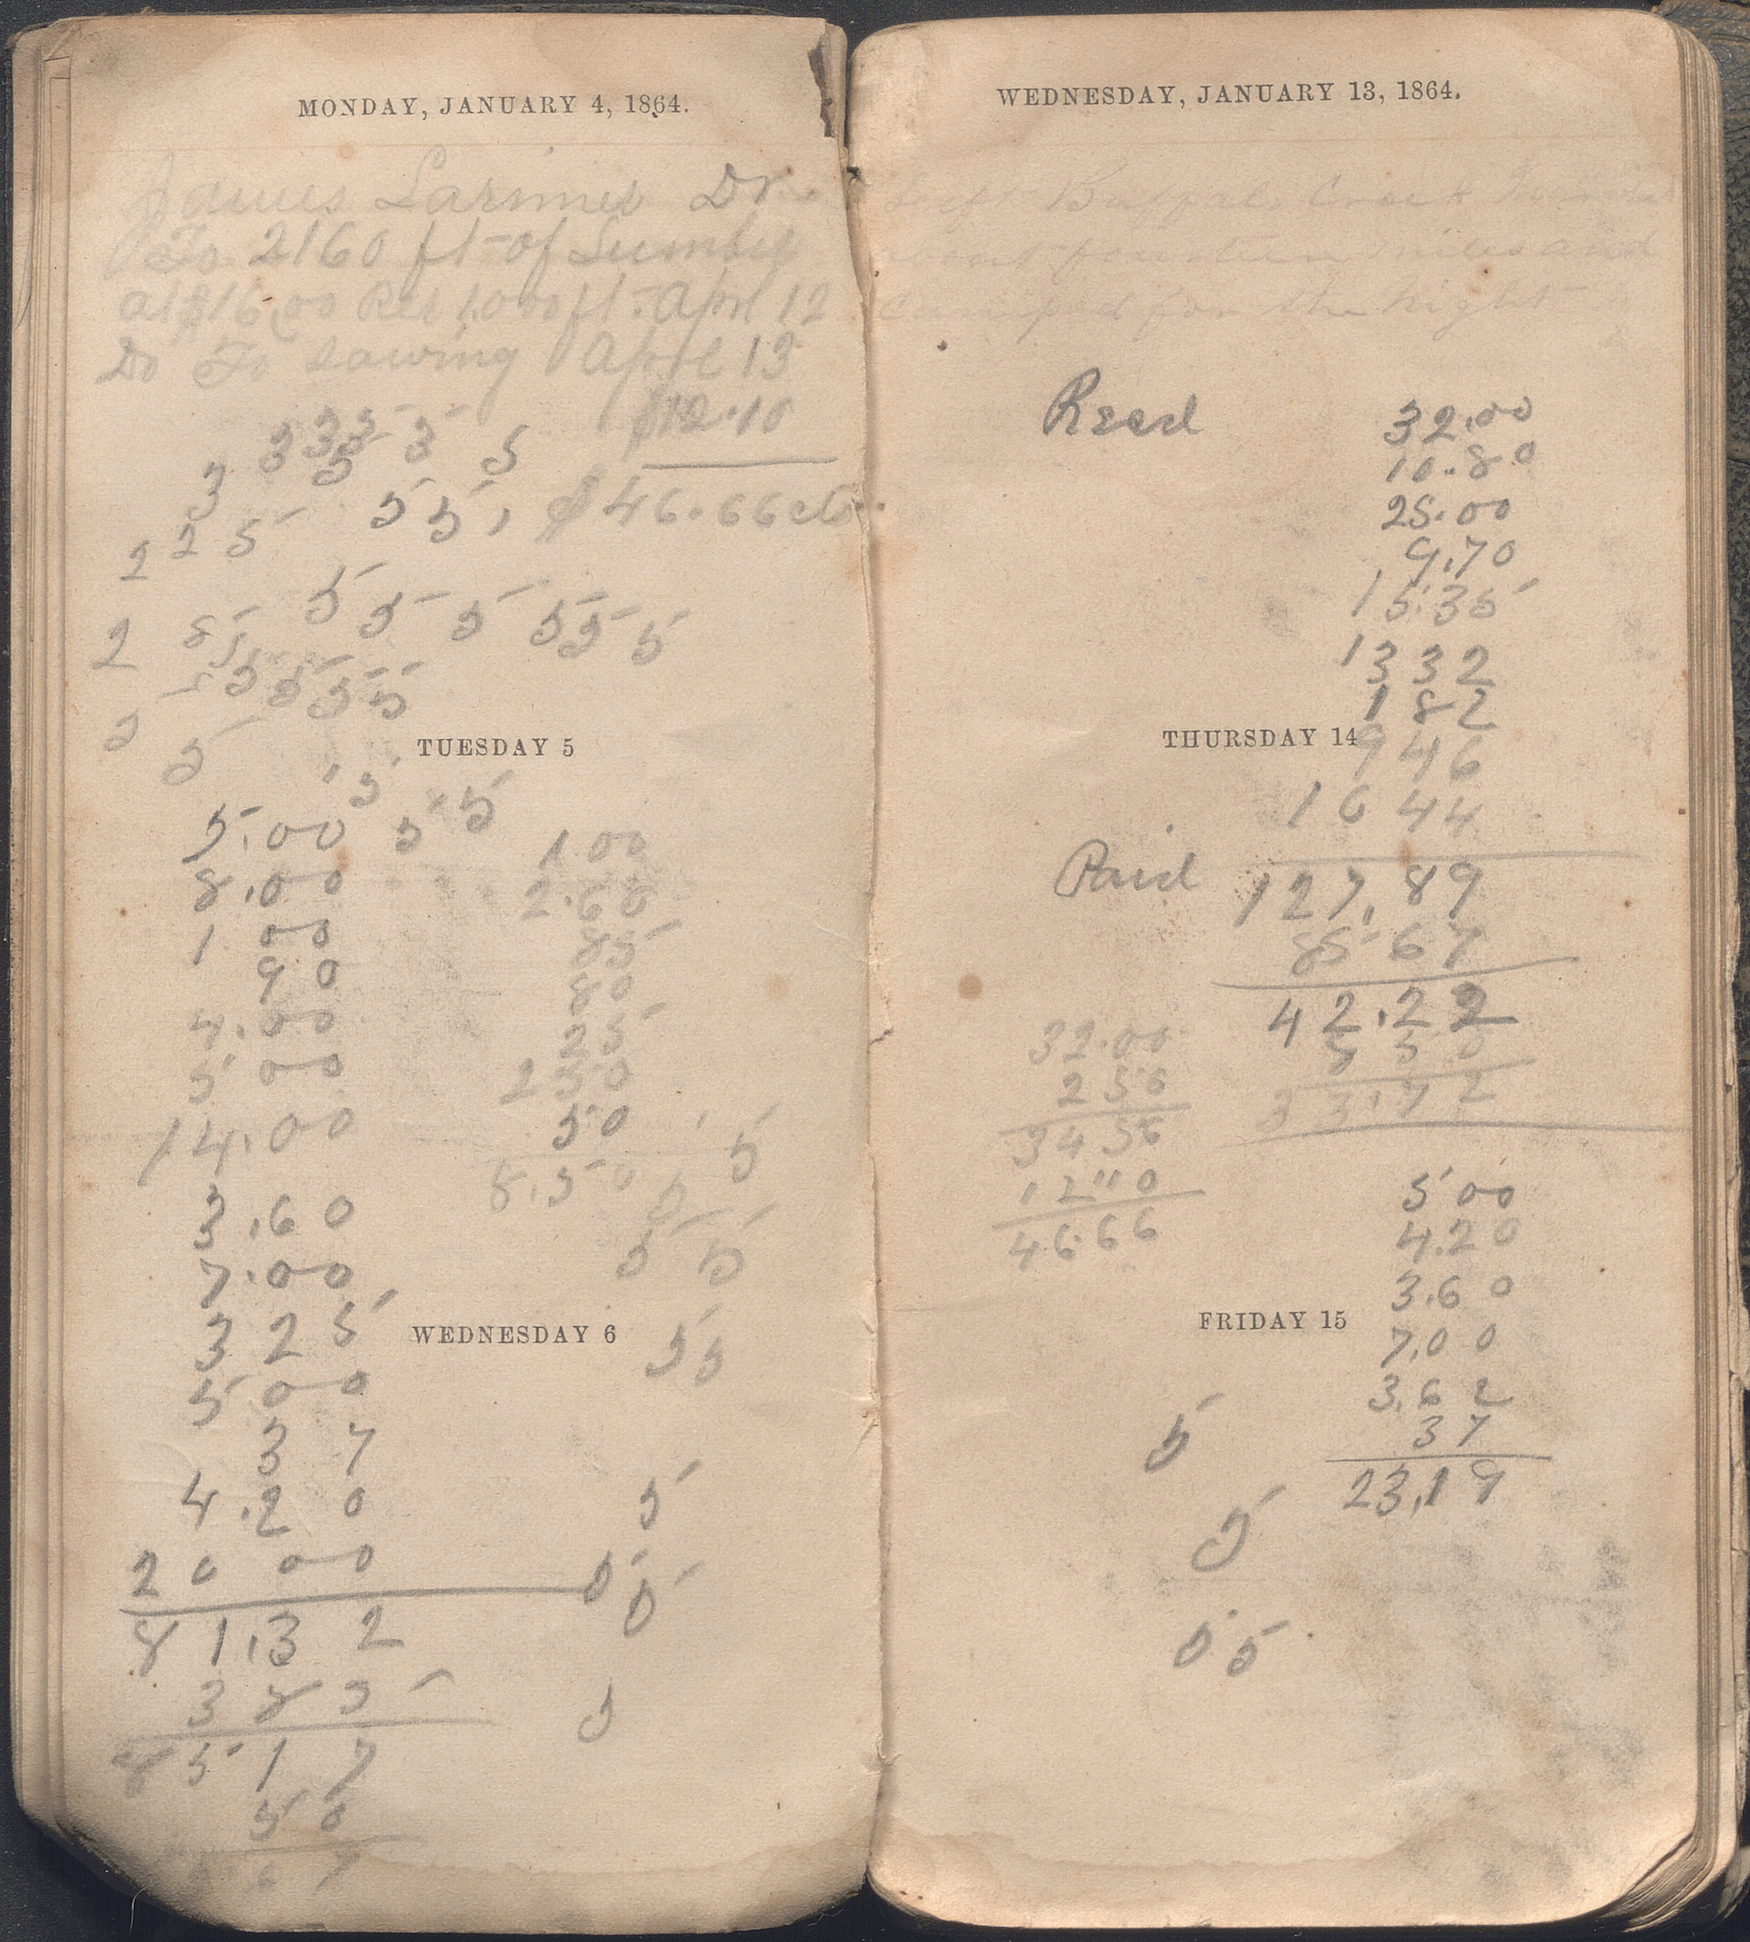 MONDAY, JANUARY 4, 1864.
James Larimer Dr
To 2160 ft of Lumber
at $16.00 Per 1000 ft. April 12
Do To Sawing April 13
$12.10
3 3 3 3 5
3 5
$46.66 cts
5 5
2 2 5
5 5 5 5 5 5
2
5 5 5 5
2 5
TUESDAY 5
5
5 5
5.00
8.00
1 00
90
4.00
5 00
14.00
3.60
7.00
3 25
5 00
37
4.20
20 00
81.32
3 85
85 17
50
67
1.00
2.60
85
80
25
2 50
50
8.50
5
5
5 5
WEDNESDAY 6
5 5
5
5 5
5
WEDNESDAY, JANUARY 13, 1864.
Left Buffalo Creek
about fourteen miles and
Camped for the night
Recd 32.00
10.80
25.00
9.70
15.35
13 32
1 82
THURSDAY 14
9 46
10 44
Paid 127.89
85 67
42.22
8 50
33.72
32.00
2 56
34 56
12 10
46.66
5 00
4.20
3.60
FRIDAY 15
7.00
3.62
37
23.19
5
5
5 5